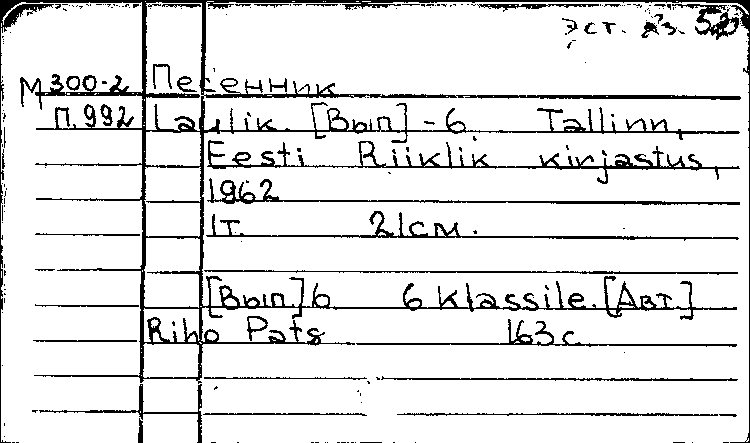 эст. яз.
М300-2 Песенник
П.992 Laulik. [Вып] - 6. Tallinn,
Eesti Riiklik kirjastus,
1962
1т. 21см.
[Вып.]6 6 klassile. [Авт.]
Riho Päts 163с